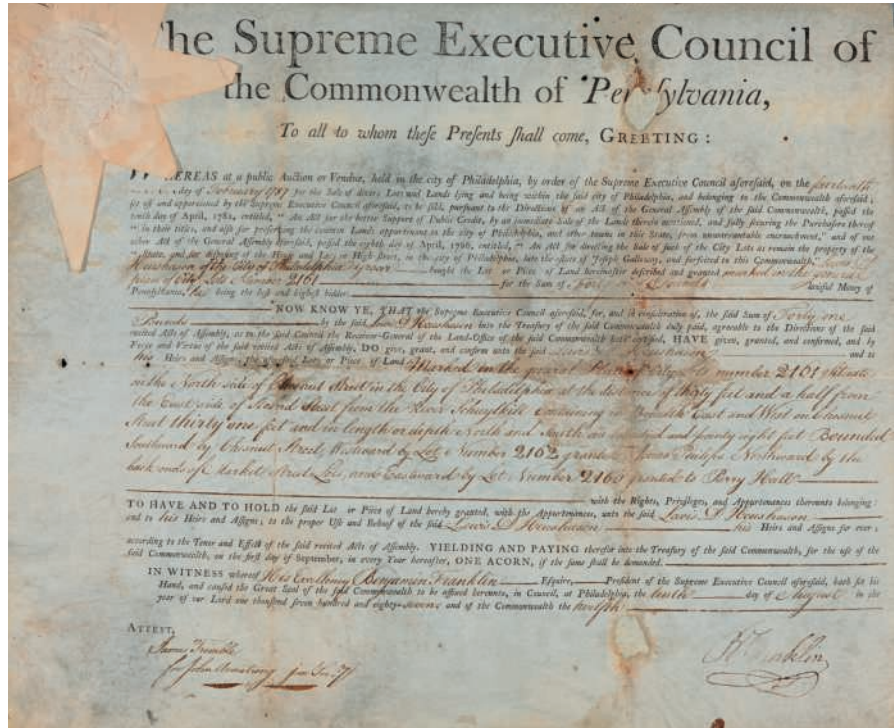 The Supreme Executive Council of
the Commonwealth of Pennsylvania,
To all to whom theſe Preſents ſhall come, GREETING:
WHEREAS at a public Auction or Vendue, held in the city of Philadelphia, by order of the Supreme Executive Council aforeſaid, on the fourteenth
day of February 1787 for the Sale of divers Lots and Lands lying and being within the ſaid city of Philadelphia, and belonging to the Commonwealth aforeſaid;
ſet off and appropriated by the Supreme Executive Council aforeſaid, to be ſold, purſuant to the Directions of an Act of the General Aſſembly of the ſaid Commonwealth, paſſed the
tenth day of April, 1781, entitled, "An Act for the better Support of Public Credit, by an immediate Sale of the Lands therein mentioned, and fully ſecuring the Purchaſers thereof
"in their titles, and alſo for preſerving the common Lands appurtenant to the city of Philadelphia, and other towns in this State, from unwarrantable encroachment," and of one
other Act of the General Aſſembly aforeſaid, paſſed the eighth day of April, 1786, entitled, "An Act for directing the Sale of ſuch of the City Lots as remain the property of the
"State, and for diſpoſing of the Houſe and Lots in High-ſtreet, in the city of Philadelphia, late the eſtate of Joſeph Galloway, and forfeited to this Commonwealth,"
of the City of Philadelphia bought the Lot or Piece of Land hereinafter deſcribed and granted marked in the general
plan of City Lots Number 2161 for the Sum of Forty one Pounds lawful Money of
Pennſylvania, he being the laſt and higheſt bidder.
NOW KNOW YE, THAT the Supreme Executive Council aforeſaid, for, and in conſideration of, the ſaid Sum of Forty one
Pounds by the ſaid into the Treaſury of the ſaid Commonwealth duly paid, agreeable to the Directions of the ſaid
recited Acts of Aſſembly, as to the ſaid Council the Receiver-General of the Land-Office of the ſaid Commonwealth hath certified, HAVE given, granted, and confirmed, and by
Force and Virtue of the ſaid recited Acts of Aſſembly, DO give, grant, and confirm unto the ſaid and to
his Heirs and Aſſigns, the aforeſaid Lot or Piece of Land Marked in the general Plan of City Lots number 2161 Situate
on the North side of Chesnut Street in the City of Philadelphia at the distance of thirty feet and a half from
the East side of Second Street from the River Schuylkill Containing in Breadth East and West on Chesnut
Street thirty one feet and in length or depth North and South one hundred and seventy eight feet Bounded
Southward by Chesnut Street, Westward by Lot Number 2162 granted Philips Northward by the
back ends of Market Street Lots, and Eastward by Lot Number 2160 granted to Perry Hall
with the Rights, Privileges, and Appurtenances thereunto belonging:
TO HAVE AND TO HOLD the ſaid Lot or Piece of Land hereby granted, with the Appurtenances, unto the ſaid
and to his Heirs and Aſſigns, to the proper Uſe and Behoof of the ſaid his Heirs and Aſſigns for ever;
according to the Tenor and Effect of the ſaid recited Acts of Aſſembly. YIELDING AND PAYING therefor into the Treaſury of the ſaid Commonwealth, for the uſe of the
ſaid Commonwealth, on the firſt day of September, in every Year hereafter, ONE ACORN, if the ſame ſhall be demanded.
IN WITNESS whereof His Excellency Benjamin Franklin Eſquire, Preſident of the Supreme Executive Council aforeſaid, hath ſet his
Hand, and cauſed the Great Seal of the ſaid Commonwealth to be affixed hereunto, in Council, at Philadelphia, the tenth day of August in the
year of our Lord one thouſand ſeven hundred and eighty-seven and of the Commonwealth the twelfth
ATTEST,
James Trimble
for John Armstrong jun Secy
B Franklin